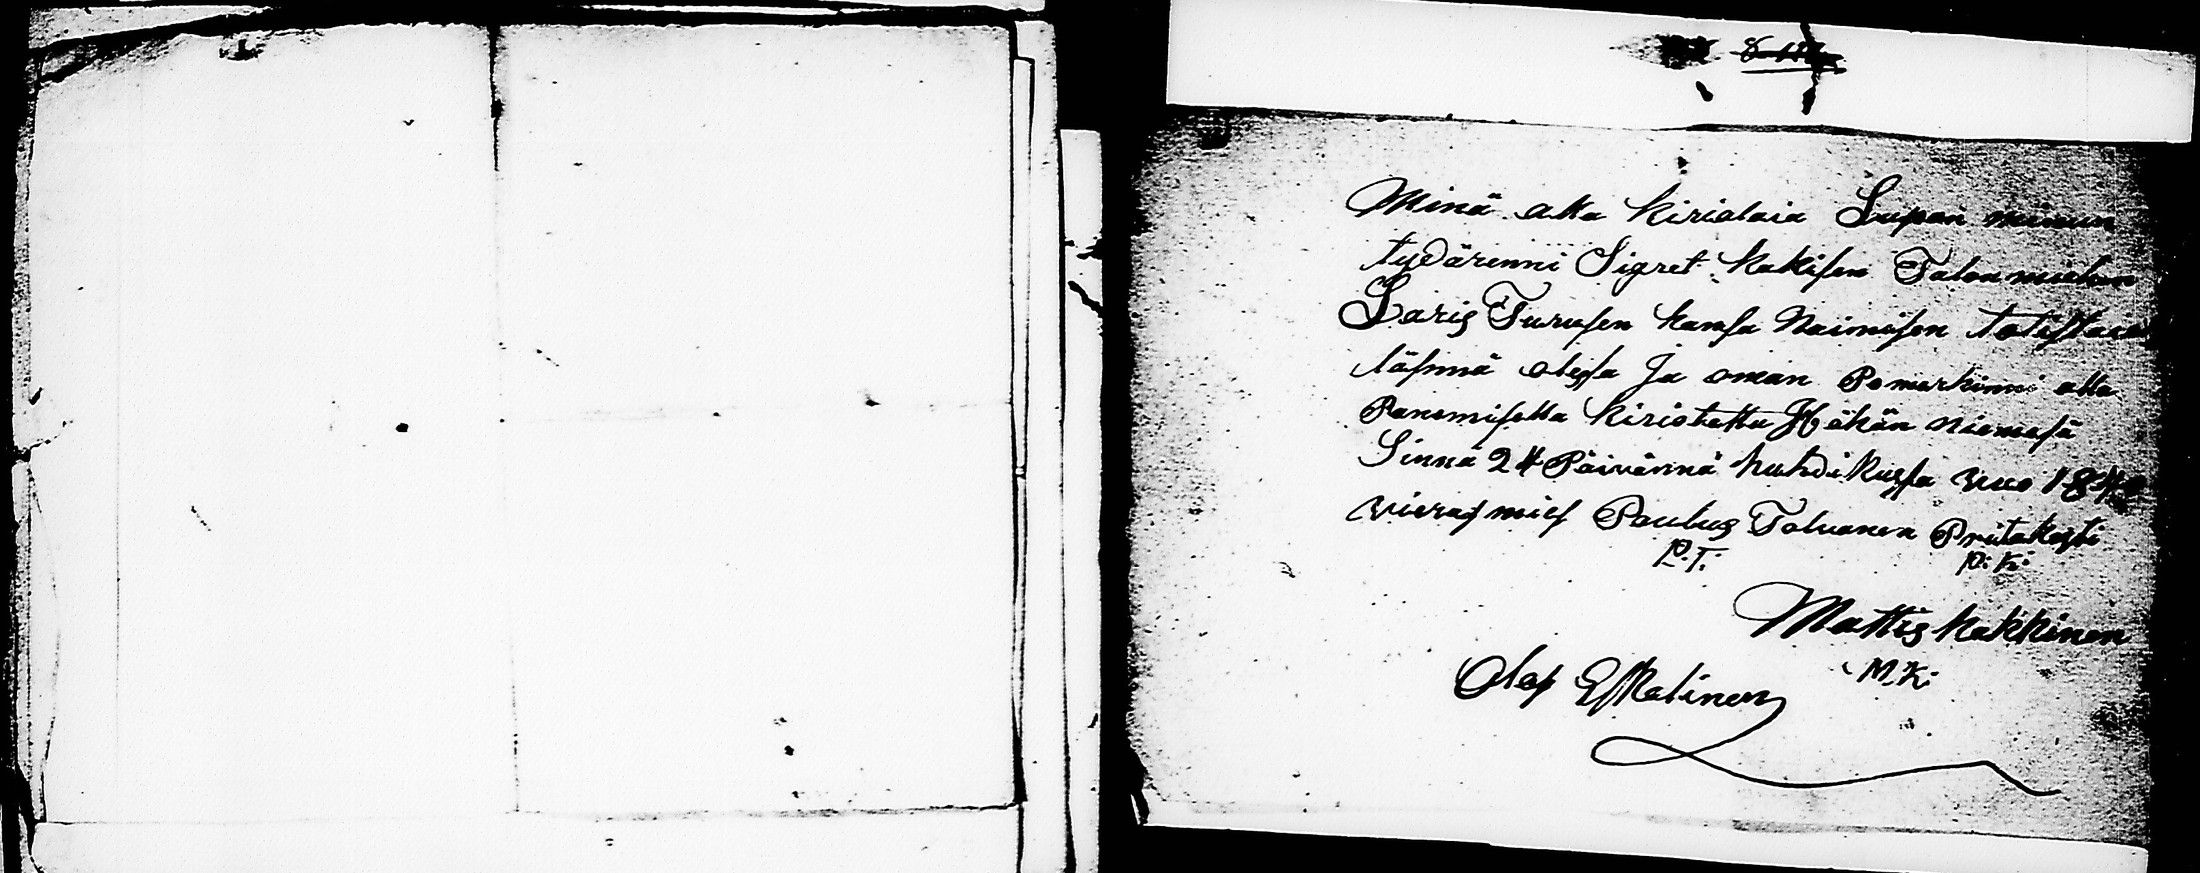 Minä alla kirioitaia Lupan minun
tydärenni Sigret kakisen Talon miehen
Laris Turusen kansa Naimisen totistaan
läsnnä olesa Ja oman Pomerkinni alla
Panemisella kiriotettu Höhän niemesä
Sinnä 24 Päivännä huhdikussa vuo 184
vieras mies Paulus Tolvanen Pritakesti
P.T. P. K.
Mattis kakkinen
M. K.
Olof Eskelinen